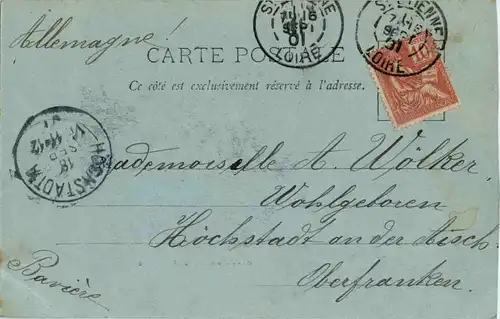 Allemagne!
ST ETIENNE
16
SEPT
01
LOIRE
ST ETIENNE
SEPT
01
LOIRE
CARTE POSTALE
Ce côté est exclusivement réservé à l'adresse.
HÖCHSTADT A/A
18
SEP
Mademoiselle A. Wölker.
Wohlgeboren
Höchstadt an der Aisch
Oberfranken.
Bavière